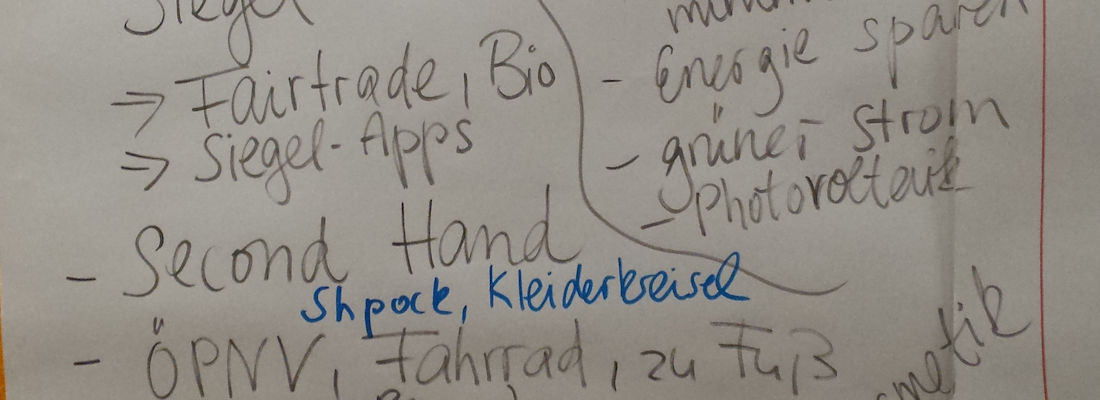 Siegel
=> Fairtrade, Bio
=> Siegel-Apps
- Second Hand
Shpock, Kleiderkreisel
- ÖPNV, Fahrrad, zu Fuß
- Energie sparen
- grüner Strom
- Photovoltaik